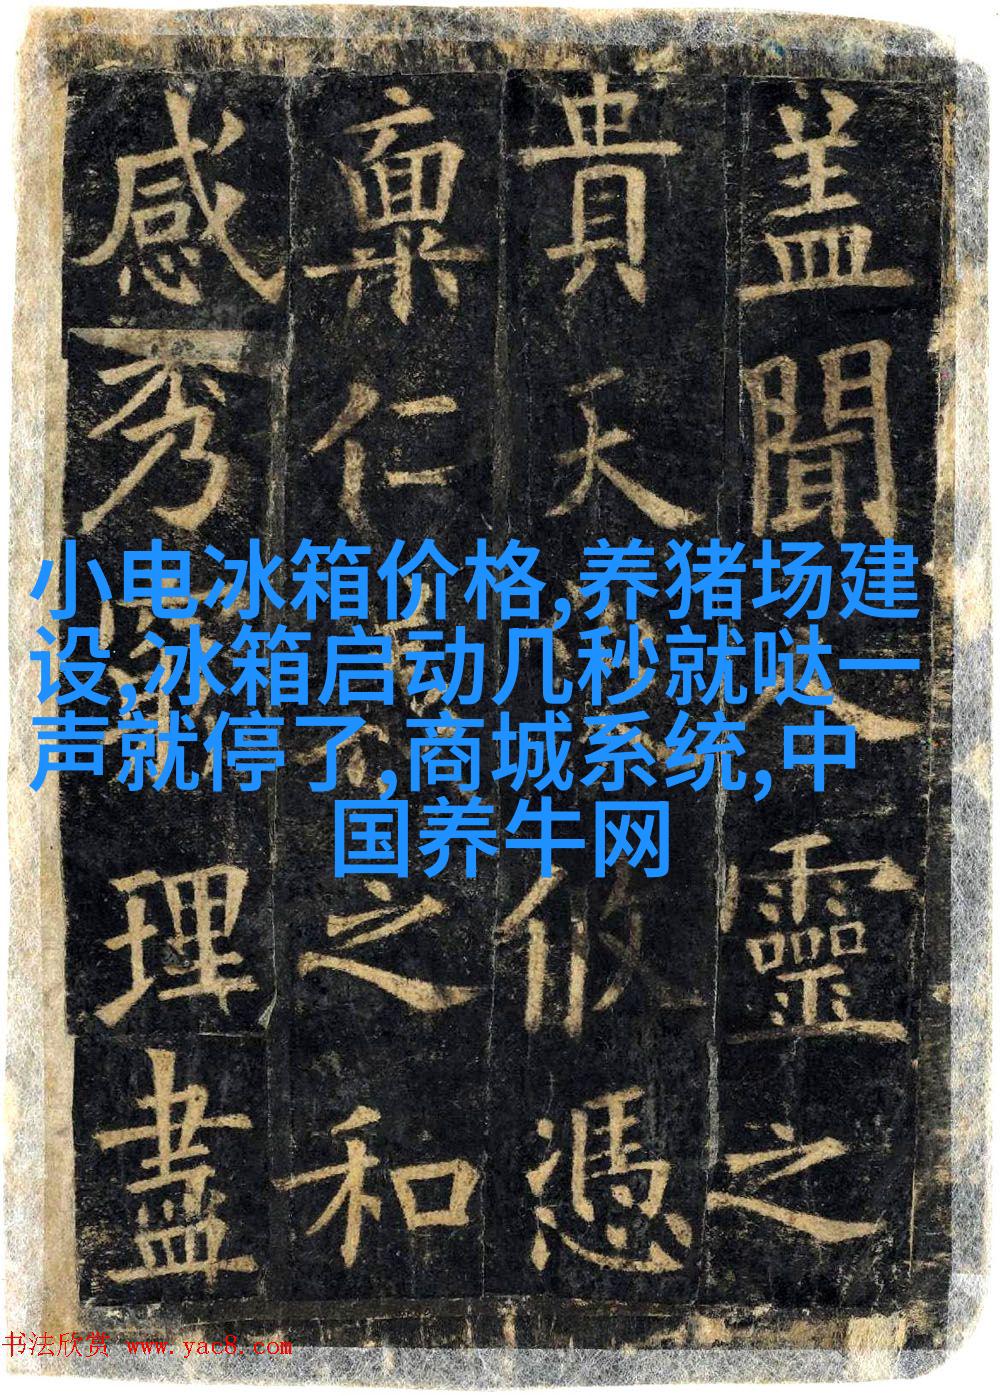 盖聞人靈之
貴天攸憑
稟仁之和
感秀理盡
小电冰箱价格,养猪场建
设,冰箱启动几秒就哒一
声就停了,商城系统,中
国养牛网
书法欣赏 www.yac8.com